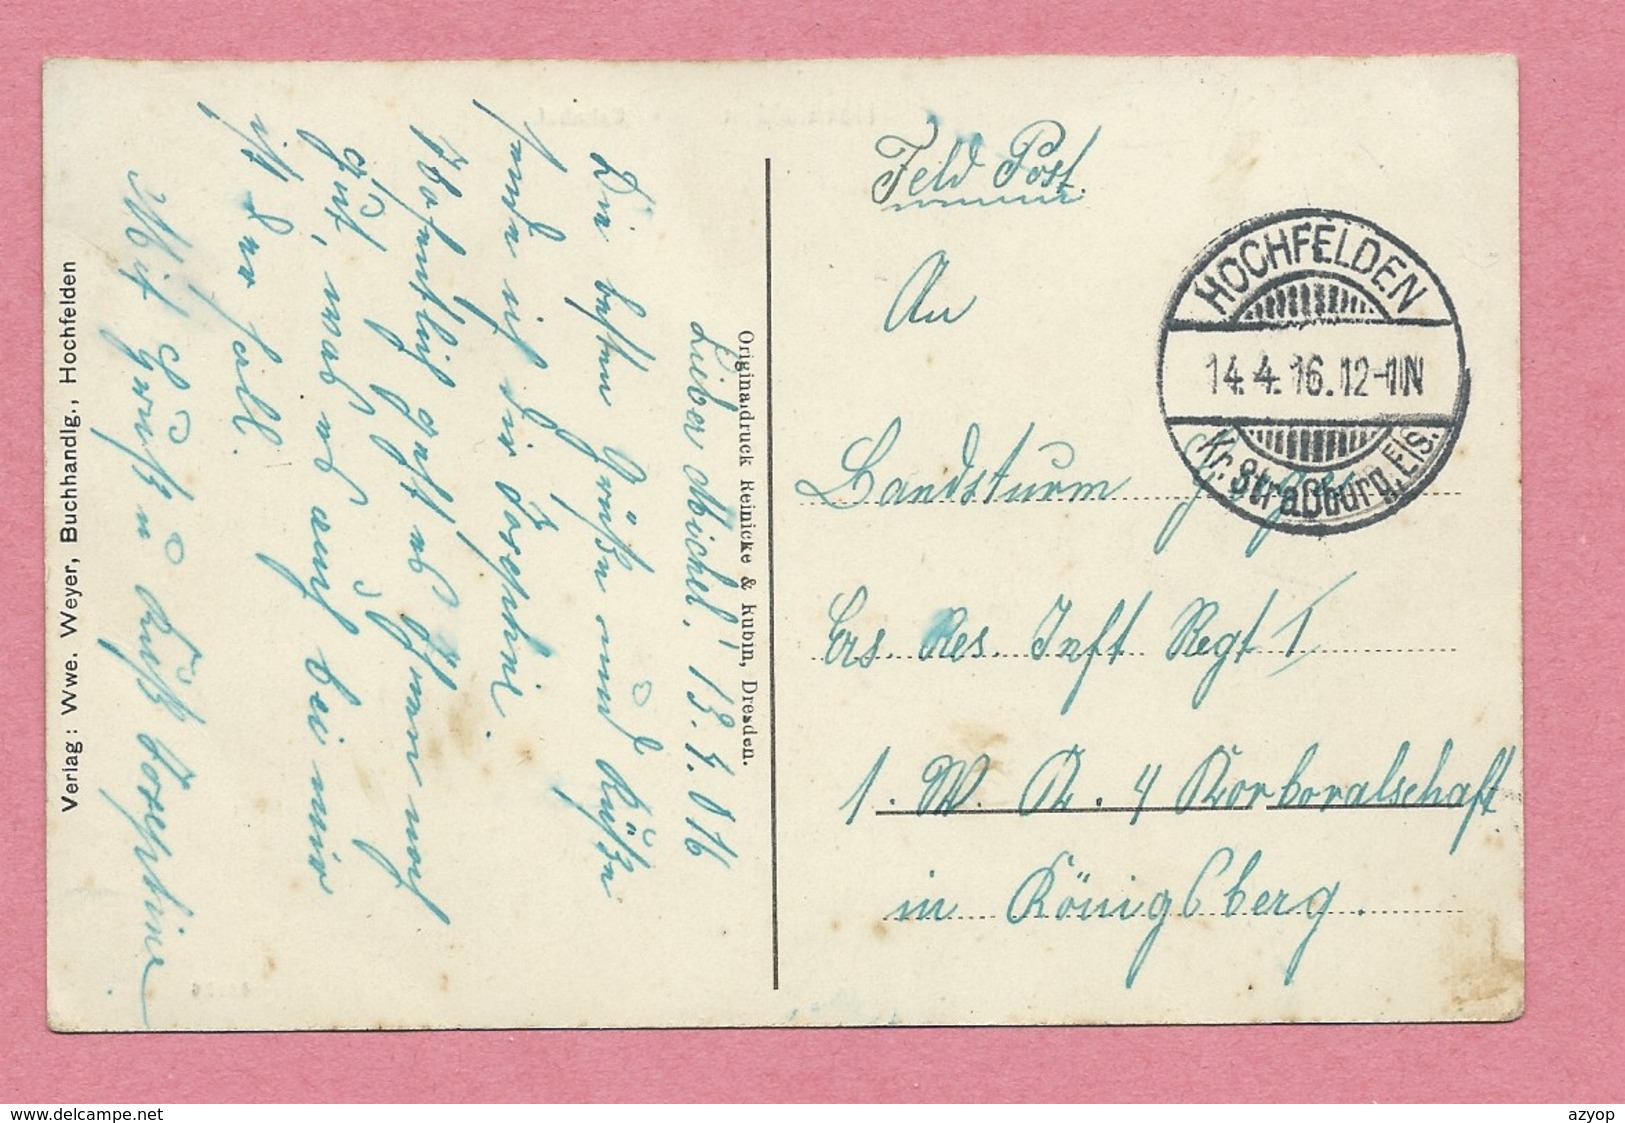 Feld Post.
An
Landsturm
Ers. Res. Inft Regt 1
1. W. R. 4 Korboralschaft
in Königsberg.
HOCHFELDEN
14.4.16.12-1N
Kr. Straßburg, Els.
Originaldruck Reinicke & Rubin, Dresden.
Lieber Michel! 13.4.016
Die besten Grüße und Küße
sende ich dir Josephine.
Hoffentlich geht es Ihnen noch
gut, was es auch bei mir
ist der fall.
Mit Gruß u Kuß Josephine
Verlag: Wwe. Weyer, Buchhandlg., Hochfelden
www.delcampe.net
azyop